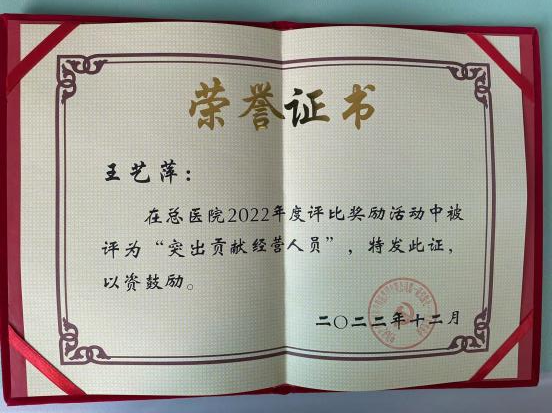 荣誉证书
王艺萍：
在总医院2022年度评比奖励活动中被
评为“突出贡献经营人员”，特发此证，
以资鼓励。
二〇二二年十二月